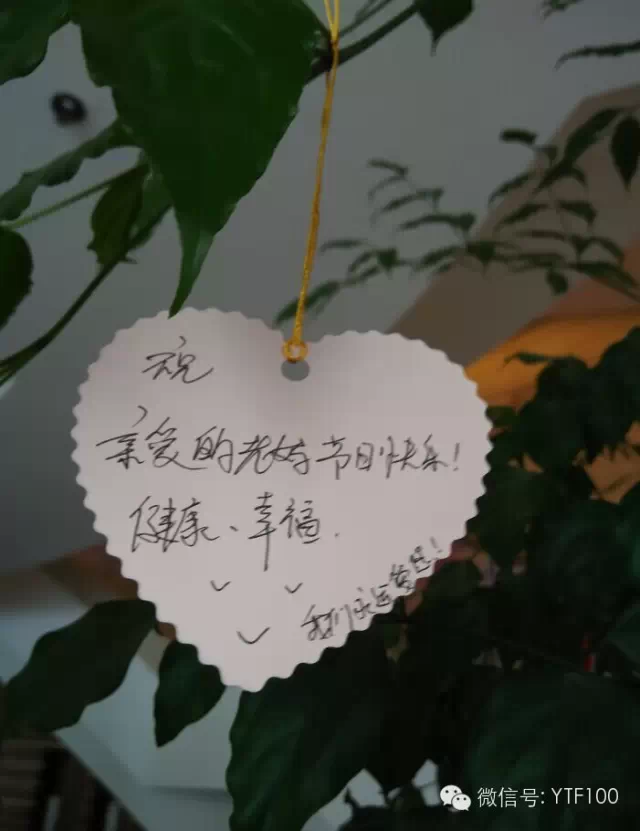 祝
亲爱的老妈节日快乐!
健康、幸福.
我们永远爱您!
微信号: YTF100